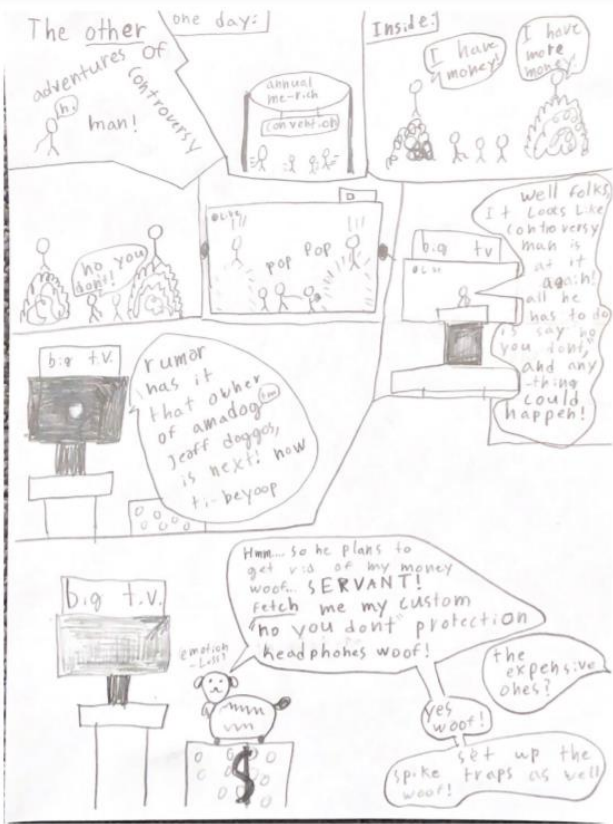 The other
adventures of
controversy
hi
man!
one day:
annual
me-rich
convention
Inside:
I have
money!
I have
more
money!
no you
dont!
Live
POP POP
big tv
well folks,
It Looks Like
controversy
man is
at it
again!
all he
has to do
is say "no
you dont,"
and any
-thing
could
happen!
big t.v.
rumor
has it
that other
of amadog tm
Jeoff doggos,
is next! now
ti- beyoop
big t.v.
Hmm... so he plans to
get rid of my money
woof... SERVANT!
Fetch me my custom
"no you dont" protection
headphones woof!
emotion
-Less?
the
expensive
ones?
yes
woof!
set up the
spike traps as well
woof!